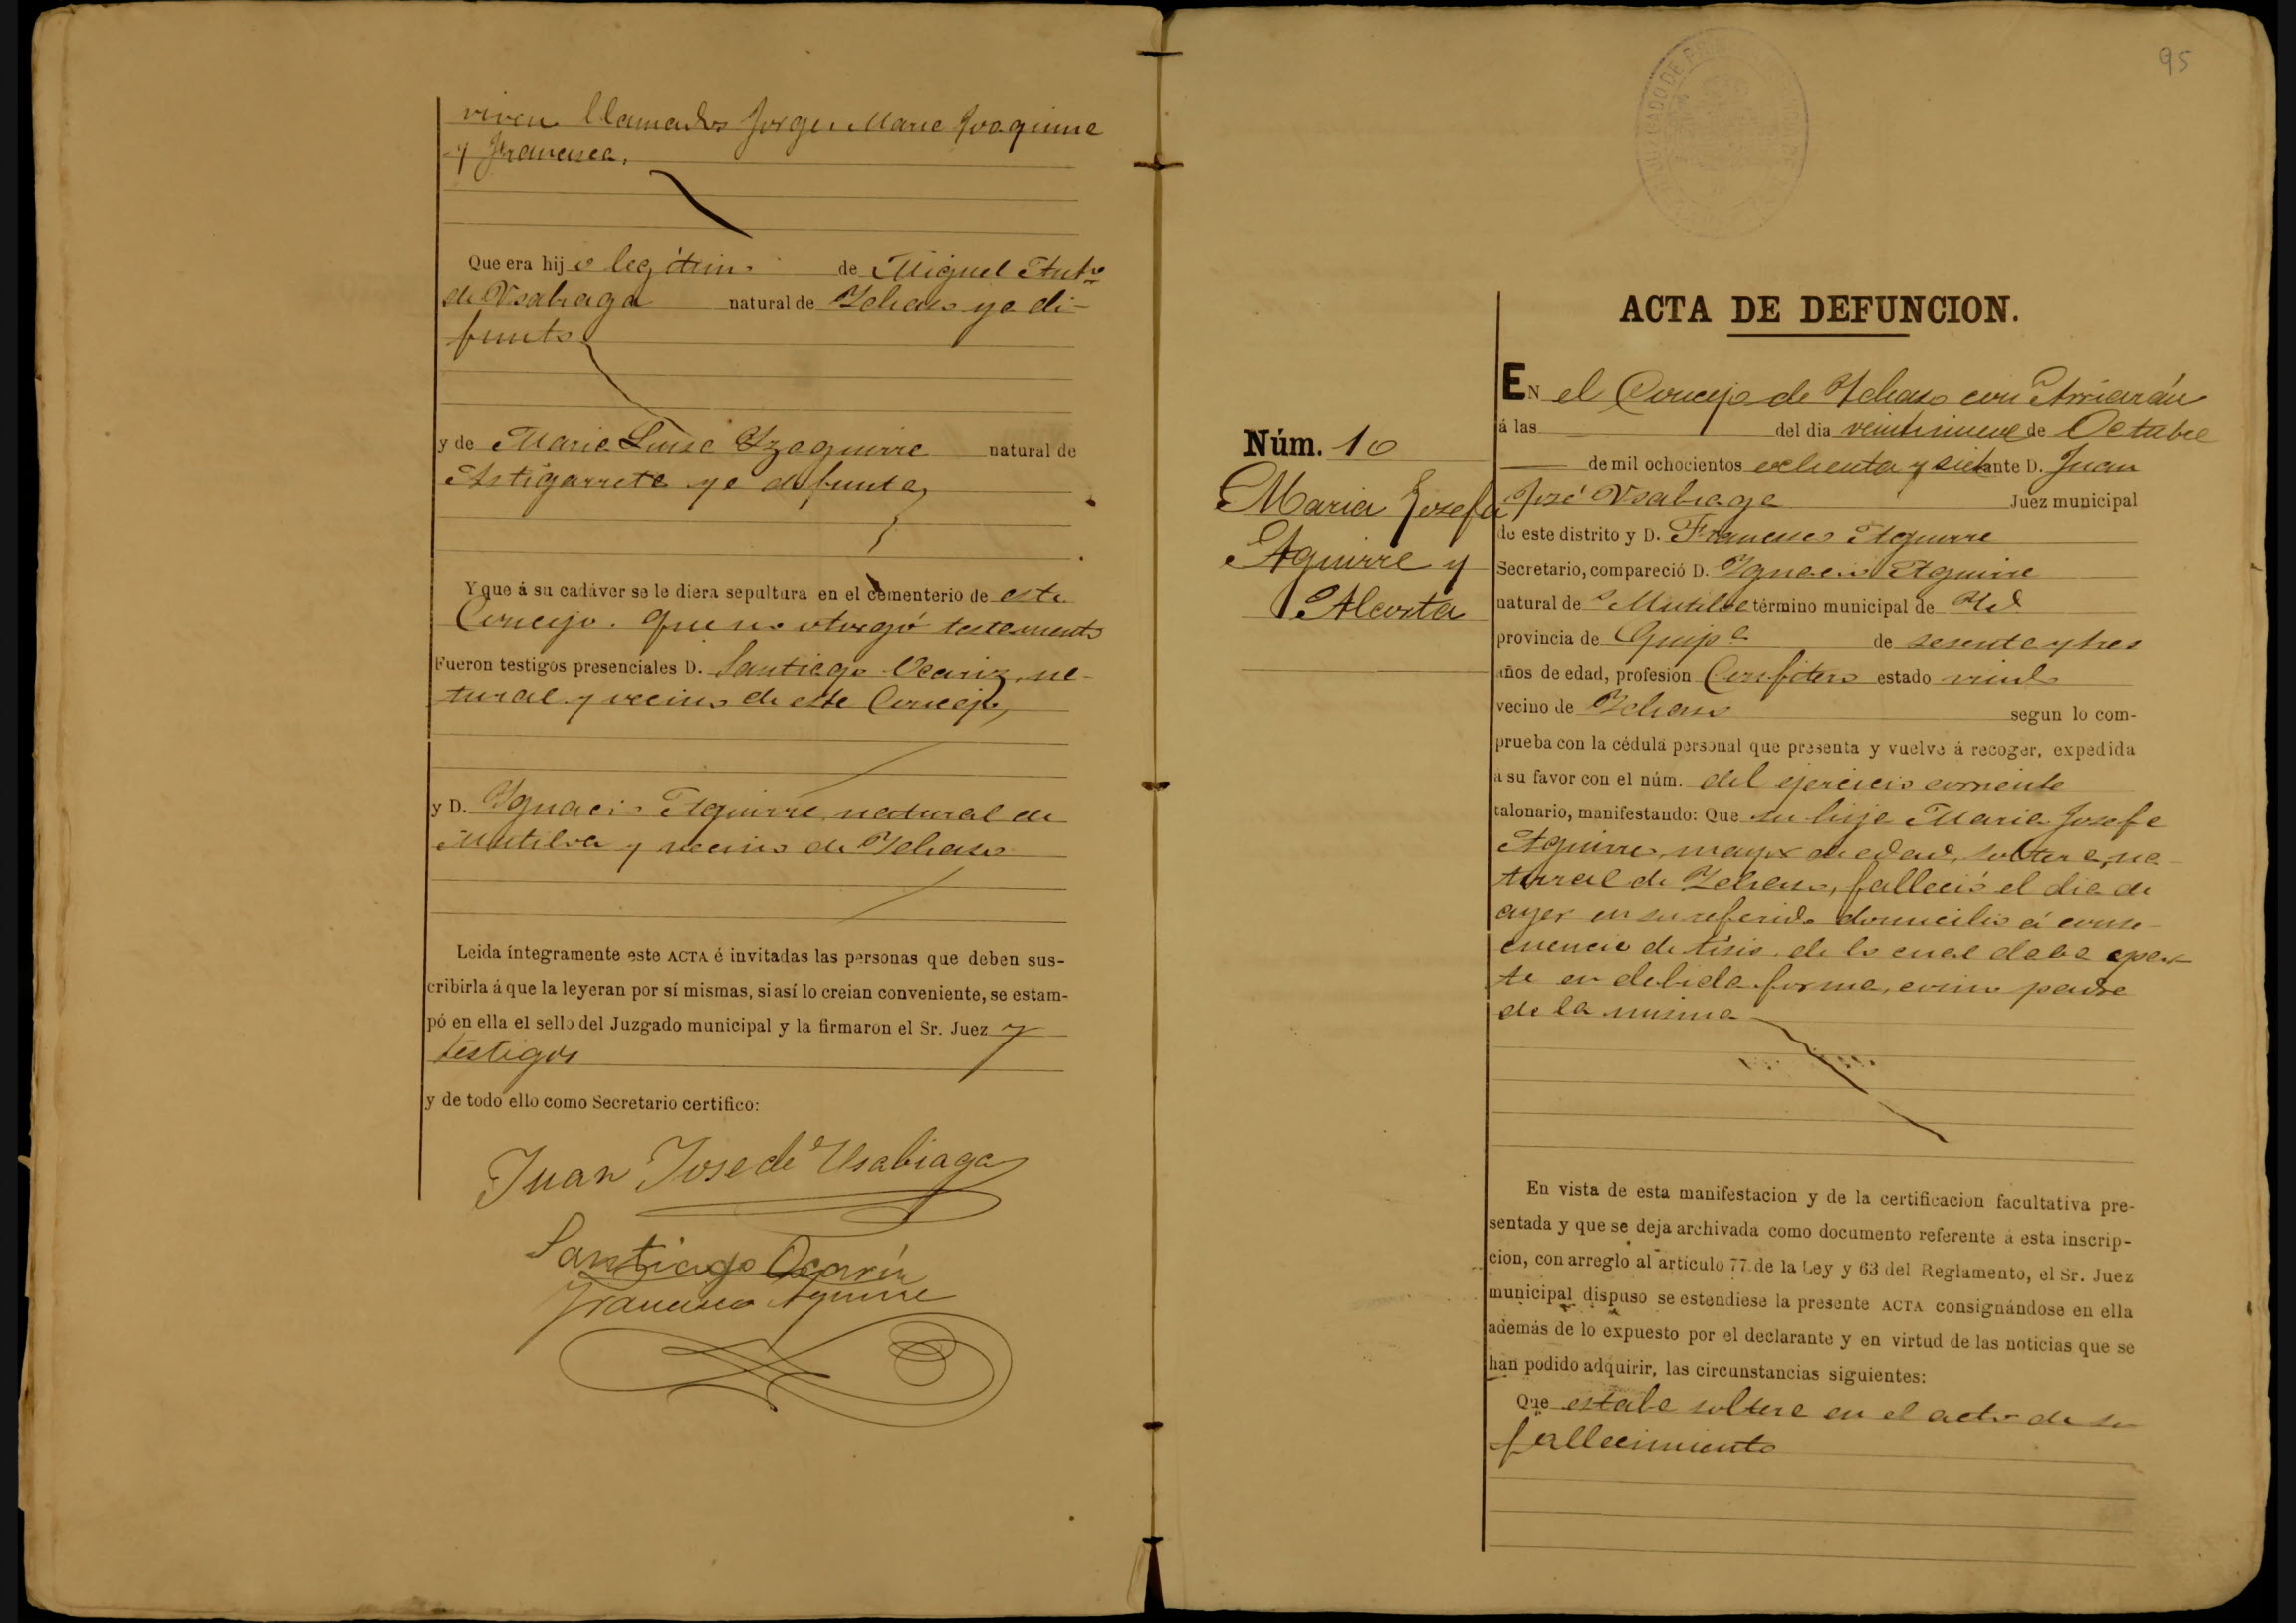 viven llamados Jorge, Maria Joaquina
y Francisca.
Que era hijo legítimo de Miguel Antº
de Usabiaga natural de Ychaso ya di-
funto
y de Maria Luisa Yzaguirre natural de
Astigarreta ya difunta,
Y que á su cadáver se le diera sepultura en el cementerio de este
Concejo. Que no otorgó testamento
Fueron testigos presenciales D. Santiago Ocariz, na-
tural y vecino de este Concejo,
y D. Ygnacio Aguirre, natural de
Mutiloa y vecino de Ychaso
Leida íntegramente este ACTA é invitadas las personas que deben sus-
cribirla á que la leyeran por sí mismas, si así lo creian conveniente, se estam-
pó en ella el sello del Juzgado municipal y la firmaron el Sr. Juez y
testigos
y de todo ello como Secretario certifico:
Juan Jose de Usabiaga
Santiago Ocariz
Francisco Aguirre
95
ACTA DE DEFUNCION.
Núm. 10
Maria Josefa
Aguirre y
Alcorta
EN el Concejo de Ychaso con Arriarán
á las del dia veintinueve de Octubre
de mil ochocientos ochenta y siete ante D. Juan
José Usabiaga Juez municipal
de este distrito y D. Francisco Aguirre
Secretario, compareció D. Ygnacio Aguirre
natural de Mutiloa término municipal de Yd
provincia de Guipª de sesenta y tres
años de edad, profesión estado viudo
vecino de Ychaso segun lo com-
prueba con la cédula personal que presenta y vuelve á recoger, expedida
á su favor con el núm. del ejercicio corriente
talonario, manifestando: Que su hija Maria Josefa
Aguirre, mayor de edad, soltera, na-
tural de Ychaso, falleció el dia de
ayer en su referido domicilio á conse-
cuencia de tísis, de lo cual daba par-
te en debida forma, como padre
de la misma
En vista de esta manifestacion y de la certificacion facultativa pre-
sentada y que se deja archivada como documento referente á esta inscrip-
cion, con arreglo al artículo 77 de la Ley y 63 del Reglamento, el Sr. Juez
municipal dispuso se estendiese la presente ACTA consignándose en ella
además de lo expuesto por el declarante y en virtud de las noticias que se
han podido adquirir, las circunstancias siguientes:
Que estaba soltera en el acto de su
fallecimiento